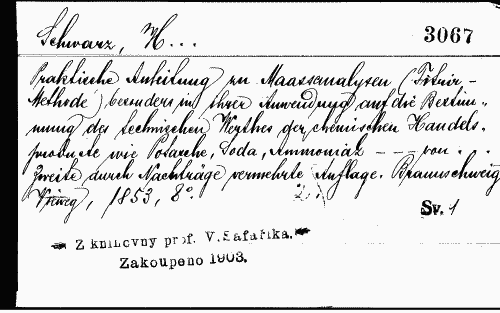 Schwarz, H...
3067
Praktische Anleitung zu Maassanalysen (Titrir-
Methode) besonders in ihrer Anwendung auf die Bestim-
mung des technischen Werthes der chemischen Handels-
produkte wie Potasche, Soda, Ammoniak --- von...
Zweite durch Nachträge vermehrte Auflage. Braunschweig,
Vieweg, 1853, 8°.
Sv. 1
Z knihovny prof. V. Šafaříka.
Zakoupeno 1903.